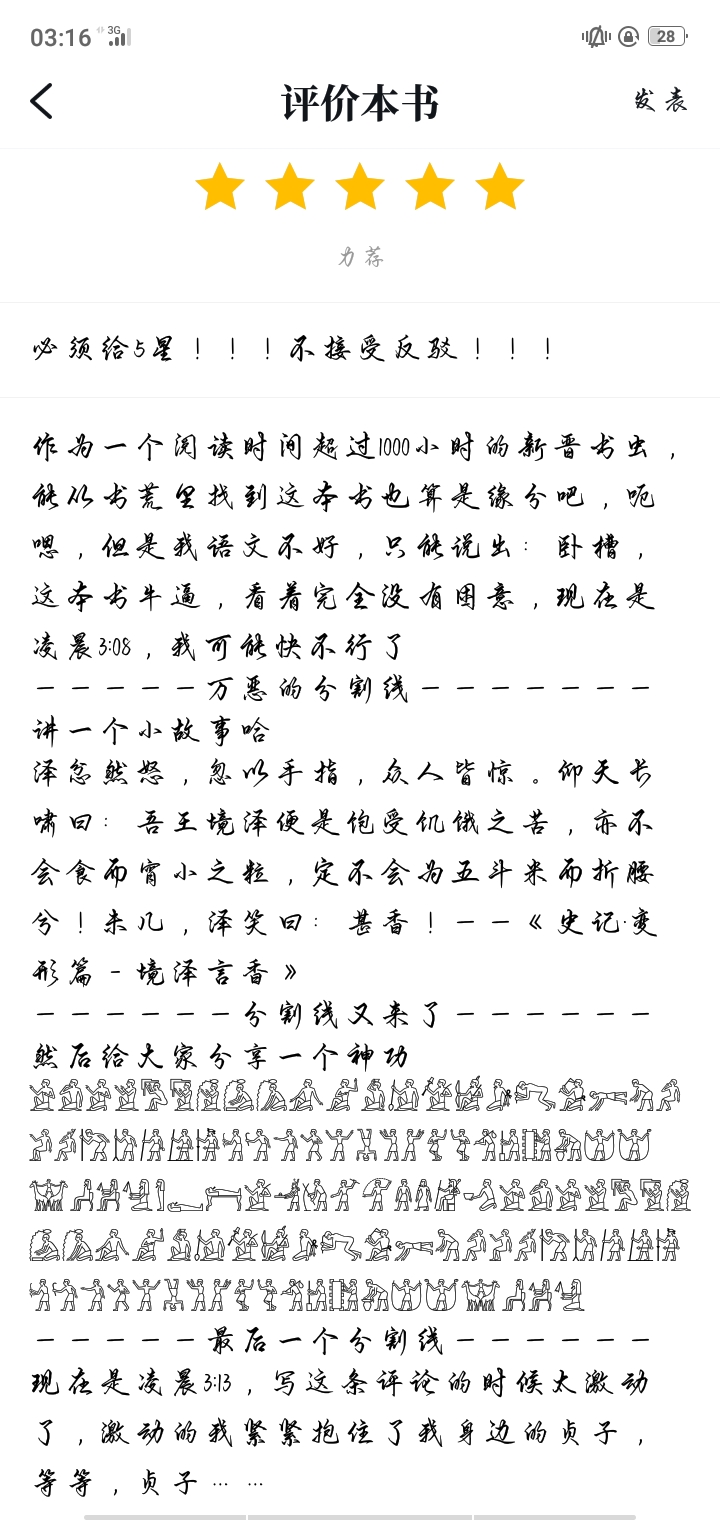 03:16 3G 28
评价本书
发表
力荐
必须给5星！！！不接受反驳！！！
作为一个阅读时间超过1000小时的新晋书虫，
能从书荒里找到这本书也算是缘分吧，呃
嗯，但是我语文不好，只能说出：卧槽，
这本书牛逼，看着完全没有困意，现在是
凌晨3:08，我可能快不行了
－－－－－万恶的分割线－－－－－－－
讲一个小故事哈
泽忿然怒，忽以手指，众人皆惊。仰天长
啸曰：吾王境泽便是饱受饥饿之苦，亦不
会食而宵小之粒，定不会为五斗米而折腰
兮！未几，泽笑曰：甚香！——《史记·变
形篇－境泽言香》
－－－－－－分割线又来了－－－－－－
然后给大家分享一个神功
－－－－－最后一个分割线－－－－－－
现在是凌晨3:13，写这条评论的时候太激动
了，激动的我紧紧抱住了我身边的贞子，
等等，贞子……